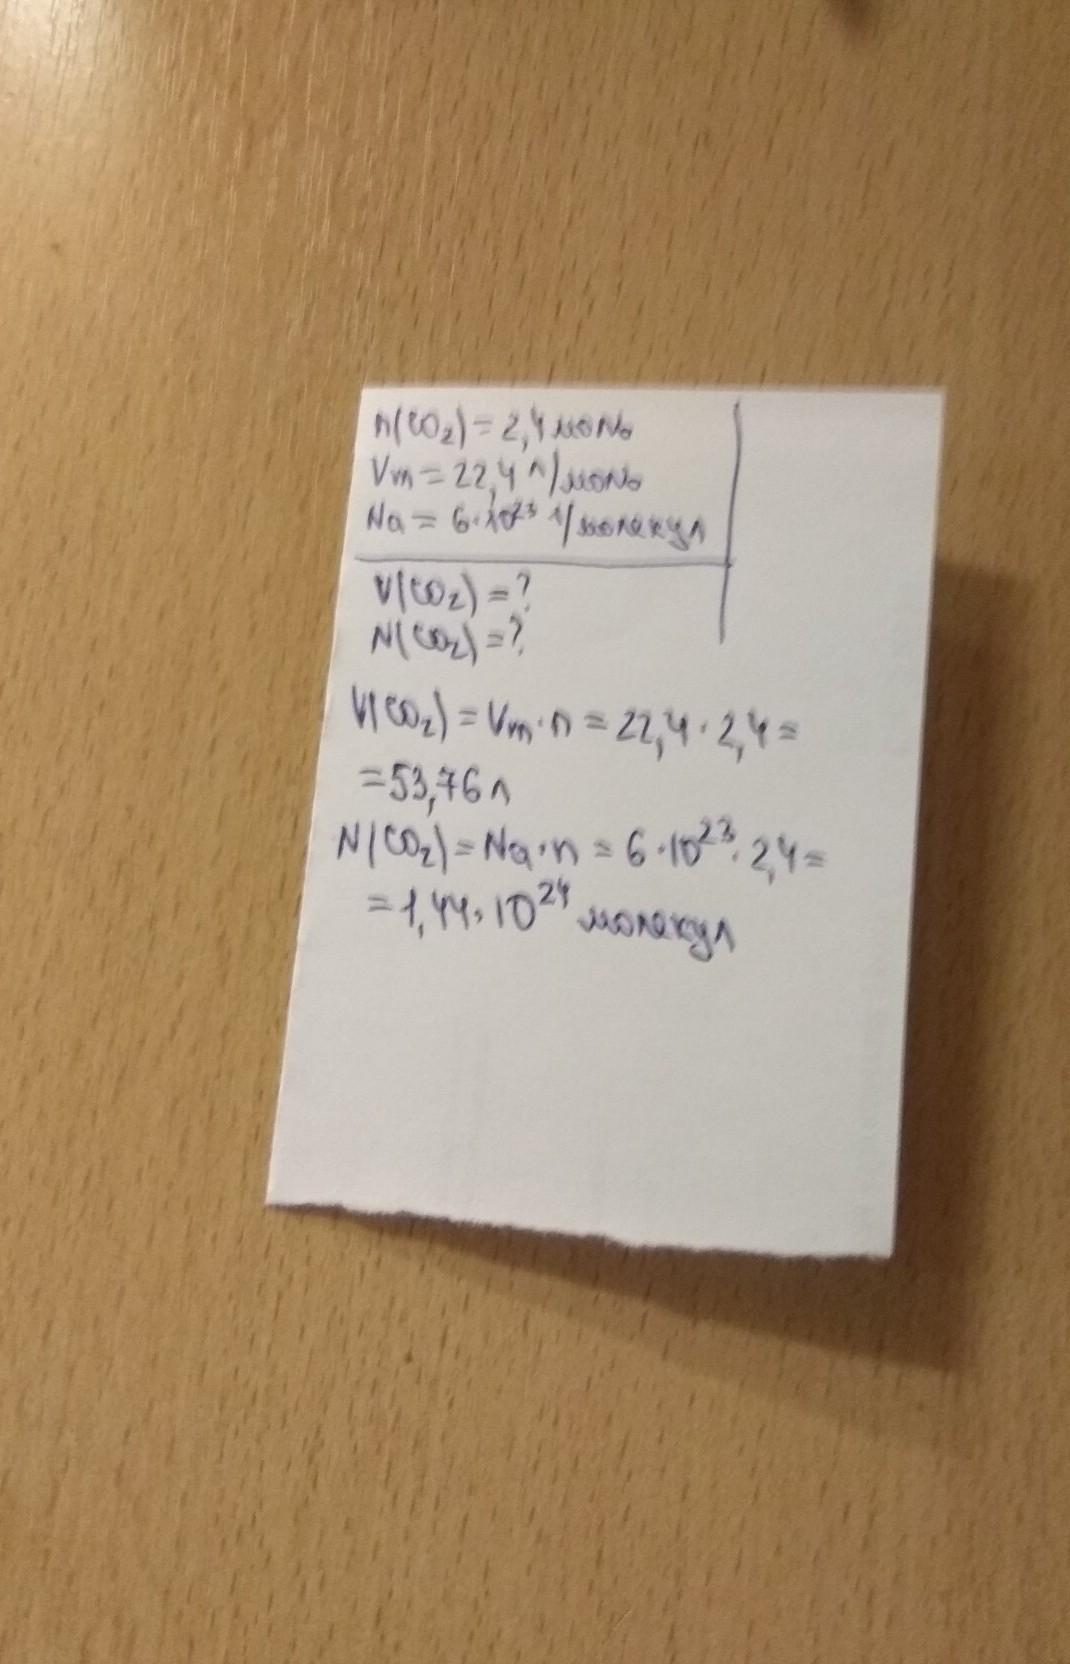 n(CO₂) = 2,4 моль
Vm = 22,4 л/моль
Na = 6·10²³ 1/молекул
V(CO₂) = ?
N(CO₂) = ?
V(CO₂) = Vm·n = 22,4 · 2,4 =
= 53,76 л
N(CO₂) = Na·n = 6·10²³· 2,4 =
= 1,44·10²⁴ молекул